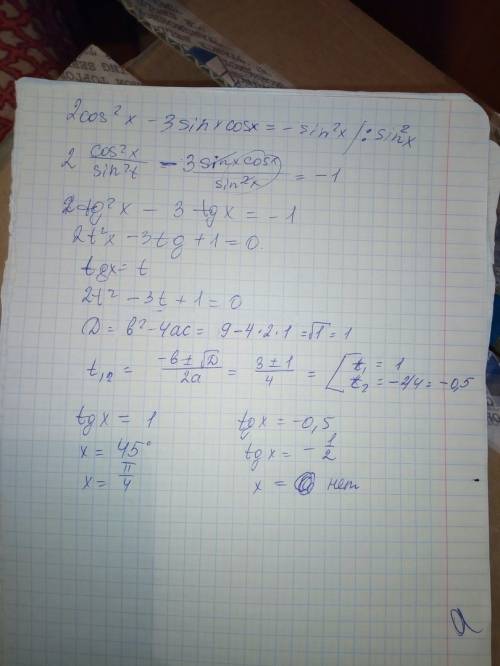 2cos²x - 3sinxcosx = -sin²x /: sin²x
2 cos²x/sin²t - 3sinxcosx/sin²x = -1
2tg²x - 3tgx = -1
2t²x - 3tg + 1 = 0.
tgx = t
2t² - 3t + 1 = 0
D = b² - 4ac = 9 - 4·2·1 = √1 = 1
t₁,₂ = -b ± √D / 2a = 3 ± 1 / 4 = [ t₁ = 1
t₂ = -2/4 = -0,5
tgx = 1 tgx = -0,5
x = 45° tgx = -1/2
x = π/4 x = нет
a